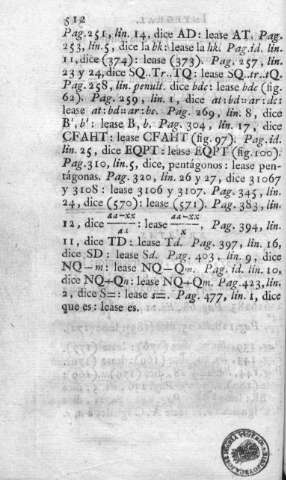 512
Pag. 251, lin. 14, dice AD: lease AT. Pag.
253, lin. 5, dice la bk: lease la hk. Pag. id. lin.
11, dice (374): lease (373). Pag. 257, lin.
23 y 24, dice SQ..Tr..TQ: lease SQ..tr..tQ.
Pag. 258, lin. penult. dice bdc: lease bde (fig.
62). Pag. 259, lin. 1, dice at:bd::ar:dc:
lease at:bd::ar:be. Pag. 269, lin. 8, dice
B', b': lease B, b. Pag. 304, lin. 17, dice
CFAHT: lease CFAHT (fig. 97). Pag. id.
lin. 25, dice EQPT: lease EQPT (fig. 100).
Pag. 310, lin. 5, dice, pentágonos: lease pen-
tágonas. Pag. 320, lin. 26 y 27, dice 31067
y 3108: lease 3106 y 3107. Pag. 345, lin.
24, dice (570): lease (571). Pag. 383, lin.
12, dice aa-xx/ax: lease aa-xx/x. Pag. 394, lin.
11, dice TD: lease Td. Pag. 397, lin. 16,
dice SD: lease Sd. Pag. 403, lin. 9, dice
NQ-m: lease NQ-Qm. Pag. id. lin. 10,
dice NQ+Qn: lease NQ+Qm. Pag. 423, lin.
2, dice S=: lease s=. Pag. 477, lin. 1, dice
que es: lease es.